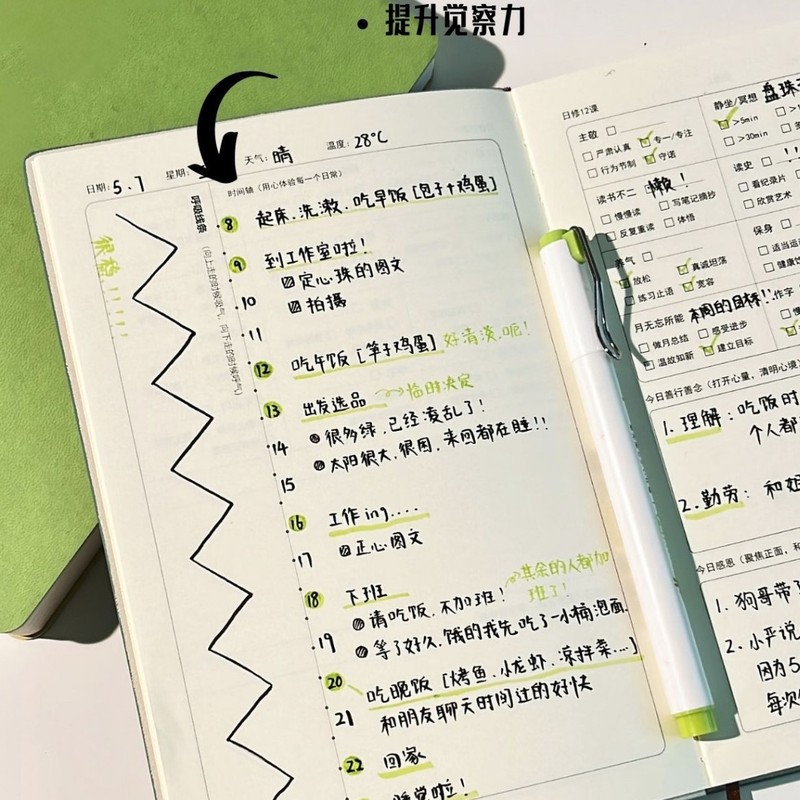 • 提升觉察力
日期: 5.7 星期: 天气: 晴 温度: 28°C
时间轴（用心体验每一个日常）
呼吸线条
（向上走的时候吸气，向下走的时候呼气）
很稳!!!!!
8 起床.洗漱.吃早饭[包子+鸡蛋]
9 到工作室啦!
定心珠的图文
10 拍摄
11
12 吃午饭[笋子鸡蛋]好清淡.呃!
13 出发选品 临时决定
14 很多绿.已经凌乱了!
太阳很大.很困.来回都在睡!!
15
16 工作ing....
17 正心图文
18 下班
请吃饭.不加班! 其余的人都加班了!
19 等了好久.饿的我先吃了一小桶泡面.
20 吃晚饭[烤鱼.小龙虾.凉拌菜...]
21 和朋友聊天时间过的好快
22 回家
睡觉啦!
日修12课
主敬
严肃认真 专一/专注
行为节制 守诺
静坐/冥想 盘珠
>5min
>30min
读书不二 懒!
慢慢读 写笔记摘抄
反复重读 体悟
读史
看纪录片
欣赏艺术
养气
放松 真诚坦荡
练习止语 宽容
保身
适当运
健康饮
月无忘所能 本周的目标!!
做月总结 感受进步
温故知新 建立目标
作字
今日善行善念（打开心量，清明心境）
1.理解: 吃饭时
个人都
2.勤劳: 和
今日感恩（聚焦正面，和
1.狗哥带
2.小严说
因为5
每次